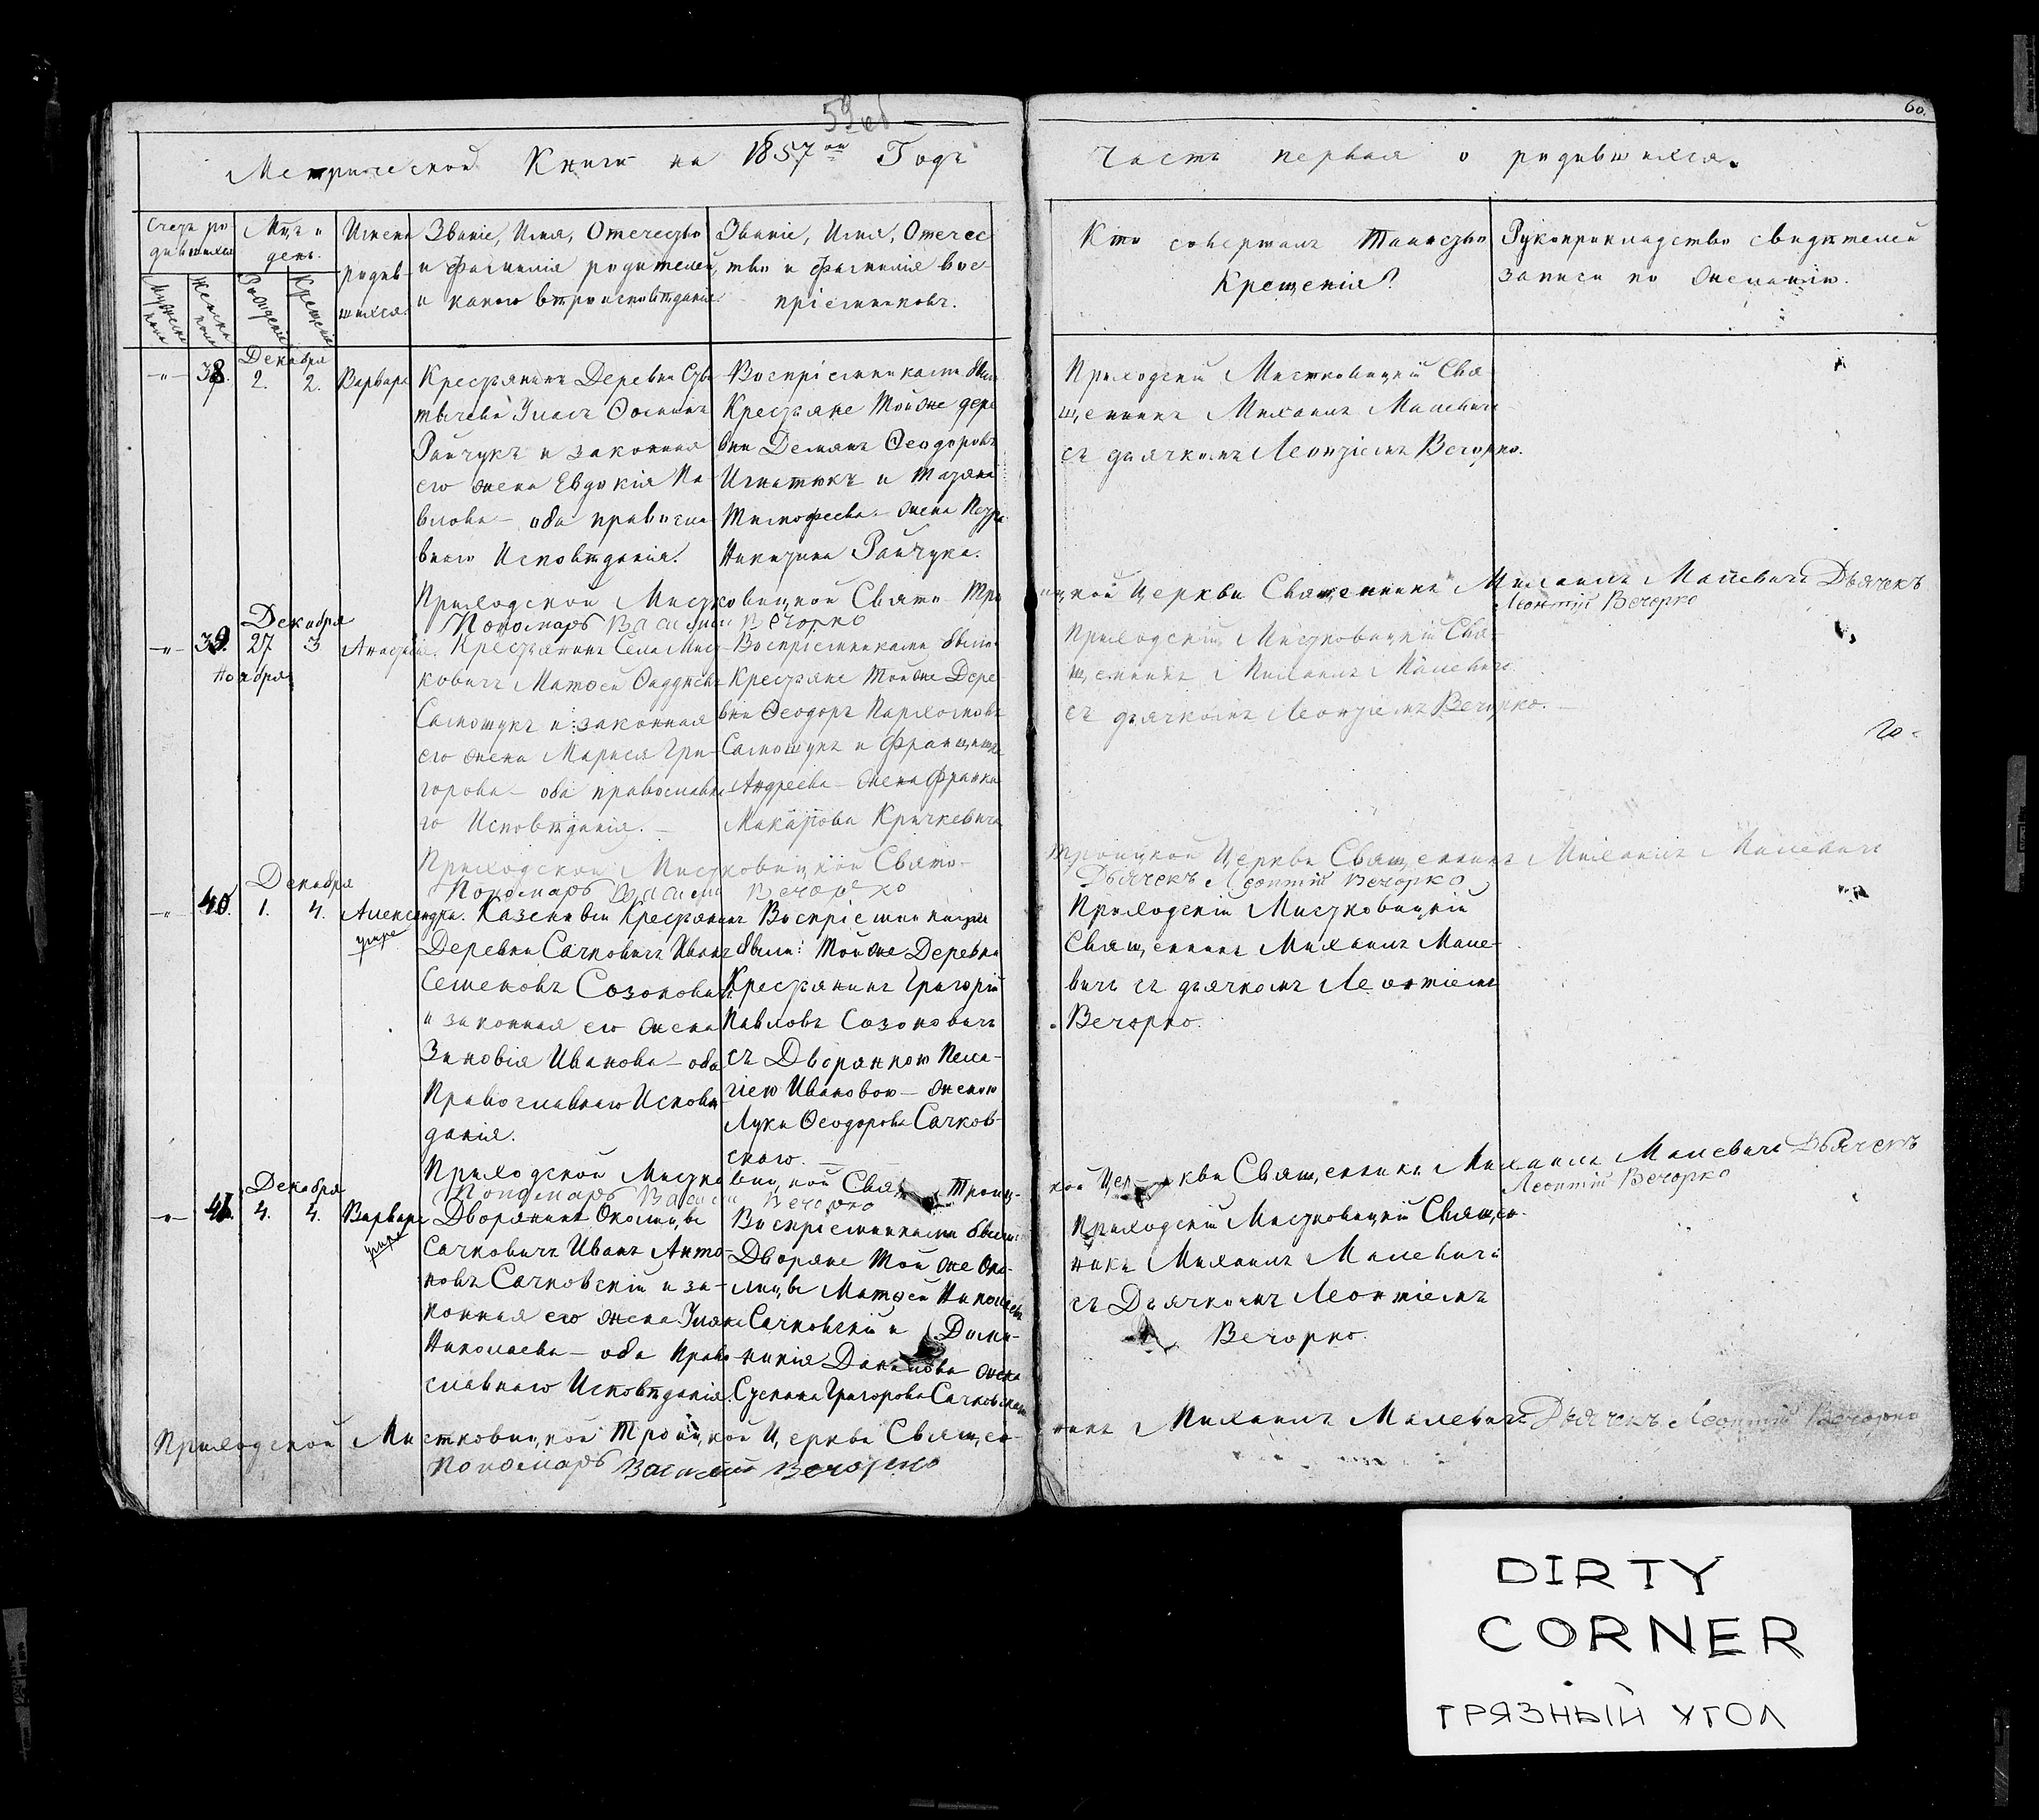 60.
Метрической Книги на 1857 ой Годъ
Часть первая о родившихся.
Счетъ ро
дившихся
Мужеска
пола
Женска
пола
Мц. и
день.
Рожденія
Крещенія
Имена
родив-
шихся.
Званіе, Имя, Отечество
и фамилія родителей,
и какого вѣроисповѣданія.
Званіе, Имя, Отечес
тво и фамилія вос-
пріемниковъ.
Кто совершалъ Таинство
Крещенія?
Рукоприкладство свидѣтелей
записи по желанію.
Декабря
38. 2. 2. Варвара
Крестьянинъ Деревни
Райчукъ и законная
его жена Евдокія Па
влова – оба правосла
внаго Исповѣданія.
Воспріемниками были
Крестьяне Той же дере
вни Демянъ Ѳеодоровъ
Игнатюкъ и Татяна
Тимофеева – жена Петра
Никитина Райчука.
Приходскій Мистковицкій Свя
щенникъ Михаилъ Малевичъ
съ дьячкомъ Леонтіемъ Вечорко.
Приходской Мистковицкой Свято Тро
ицкой Церкви Священникъ Михаилъ Малевичъ Дьячекъ
Леонтій Вечорко
Пономарь Василій Вечорко
Декабря
39. 27. 3
Ноября
Крестьянинъ Села Мист
ковичъ Матѳей
Самощукъ и законная
его жена Марися Гри-
горова – оба православна
го Исповѣданія. –
Воспріемниками были
Крестьяне Той же Дере
вни Ѳеодоръ Пархомовъ
Самощукъ и Францишка
Андреева – жена Франка
Макарова Кричкевича
Приходскій Мистковицкій Свя-
щенникъ Михаилъ Малевичъ
съ дьячкомъ Леонтіемъ Вечорко. –
Приходской Мистковицкой Свято-
Троицкой Церкви Священникъ Михаилъ Малевичъ
Пономарь Василій Вечорко
Дьячекъ Леонтій Вечорко
Декабря
40. 1. 4. Александра.
умре
Казенный Крестьянинъ
Деревни Сачковичъ Иванъ
Семеновъ Созоновичъ
и законная его жена
Зиновія Иванова – оба
Православнаго Исповѣ
данія.
Воспріемниками
были: Той же Деревни
Крестьянинъ Григорій
Павловъ Созоновичъ
съ Дворянкою Пела-
гіею Ивановою – женою
Луки Ѳеодорова Сачков-
скаго. –
Приходскій Мистковицкій
Священникъ Михаилъ Мале-
вичъ съ дьячкомъ Леонтіемъ
Вечорко.
Приходской Мистковицкой Свято Троиц-
кой Церкви Священникъ Михаилъ Малевичъ Дьячекъ
Леонтій Вечорко
Пономарь Василій Вечорко
Декабря
41. 4. 4. Варвара
умре
Дворянинъ Околицы
Сачковичъ Иванъ Анто-
новъ Сачковскій и за-
конная его жена Уляна
Николаева – оба Право
славнаго Исповѣданія.
Воспріемниками были:
Дворяне Той же Око-
лицы Матѳей Николаевъ
Сачковскій и Доми-
никія Данилова жена
Степана Григорова Сачковскаго
Приходскій Мистковицкій Священ-
никъ Михаилъ Малевичъ
съ Дьячкомъ Леонтіемъ
Вечорко.
Приходской Мистковицкой Троицкой Церкви Священ-
никъ Михаилъ Малевичъ Дьячекъ Леонтій Вечорко
Пономарь Василій Вечорко
DIRTY
CORNER
ГРЯЗНЫЙ УГОЛ